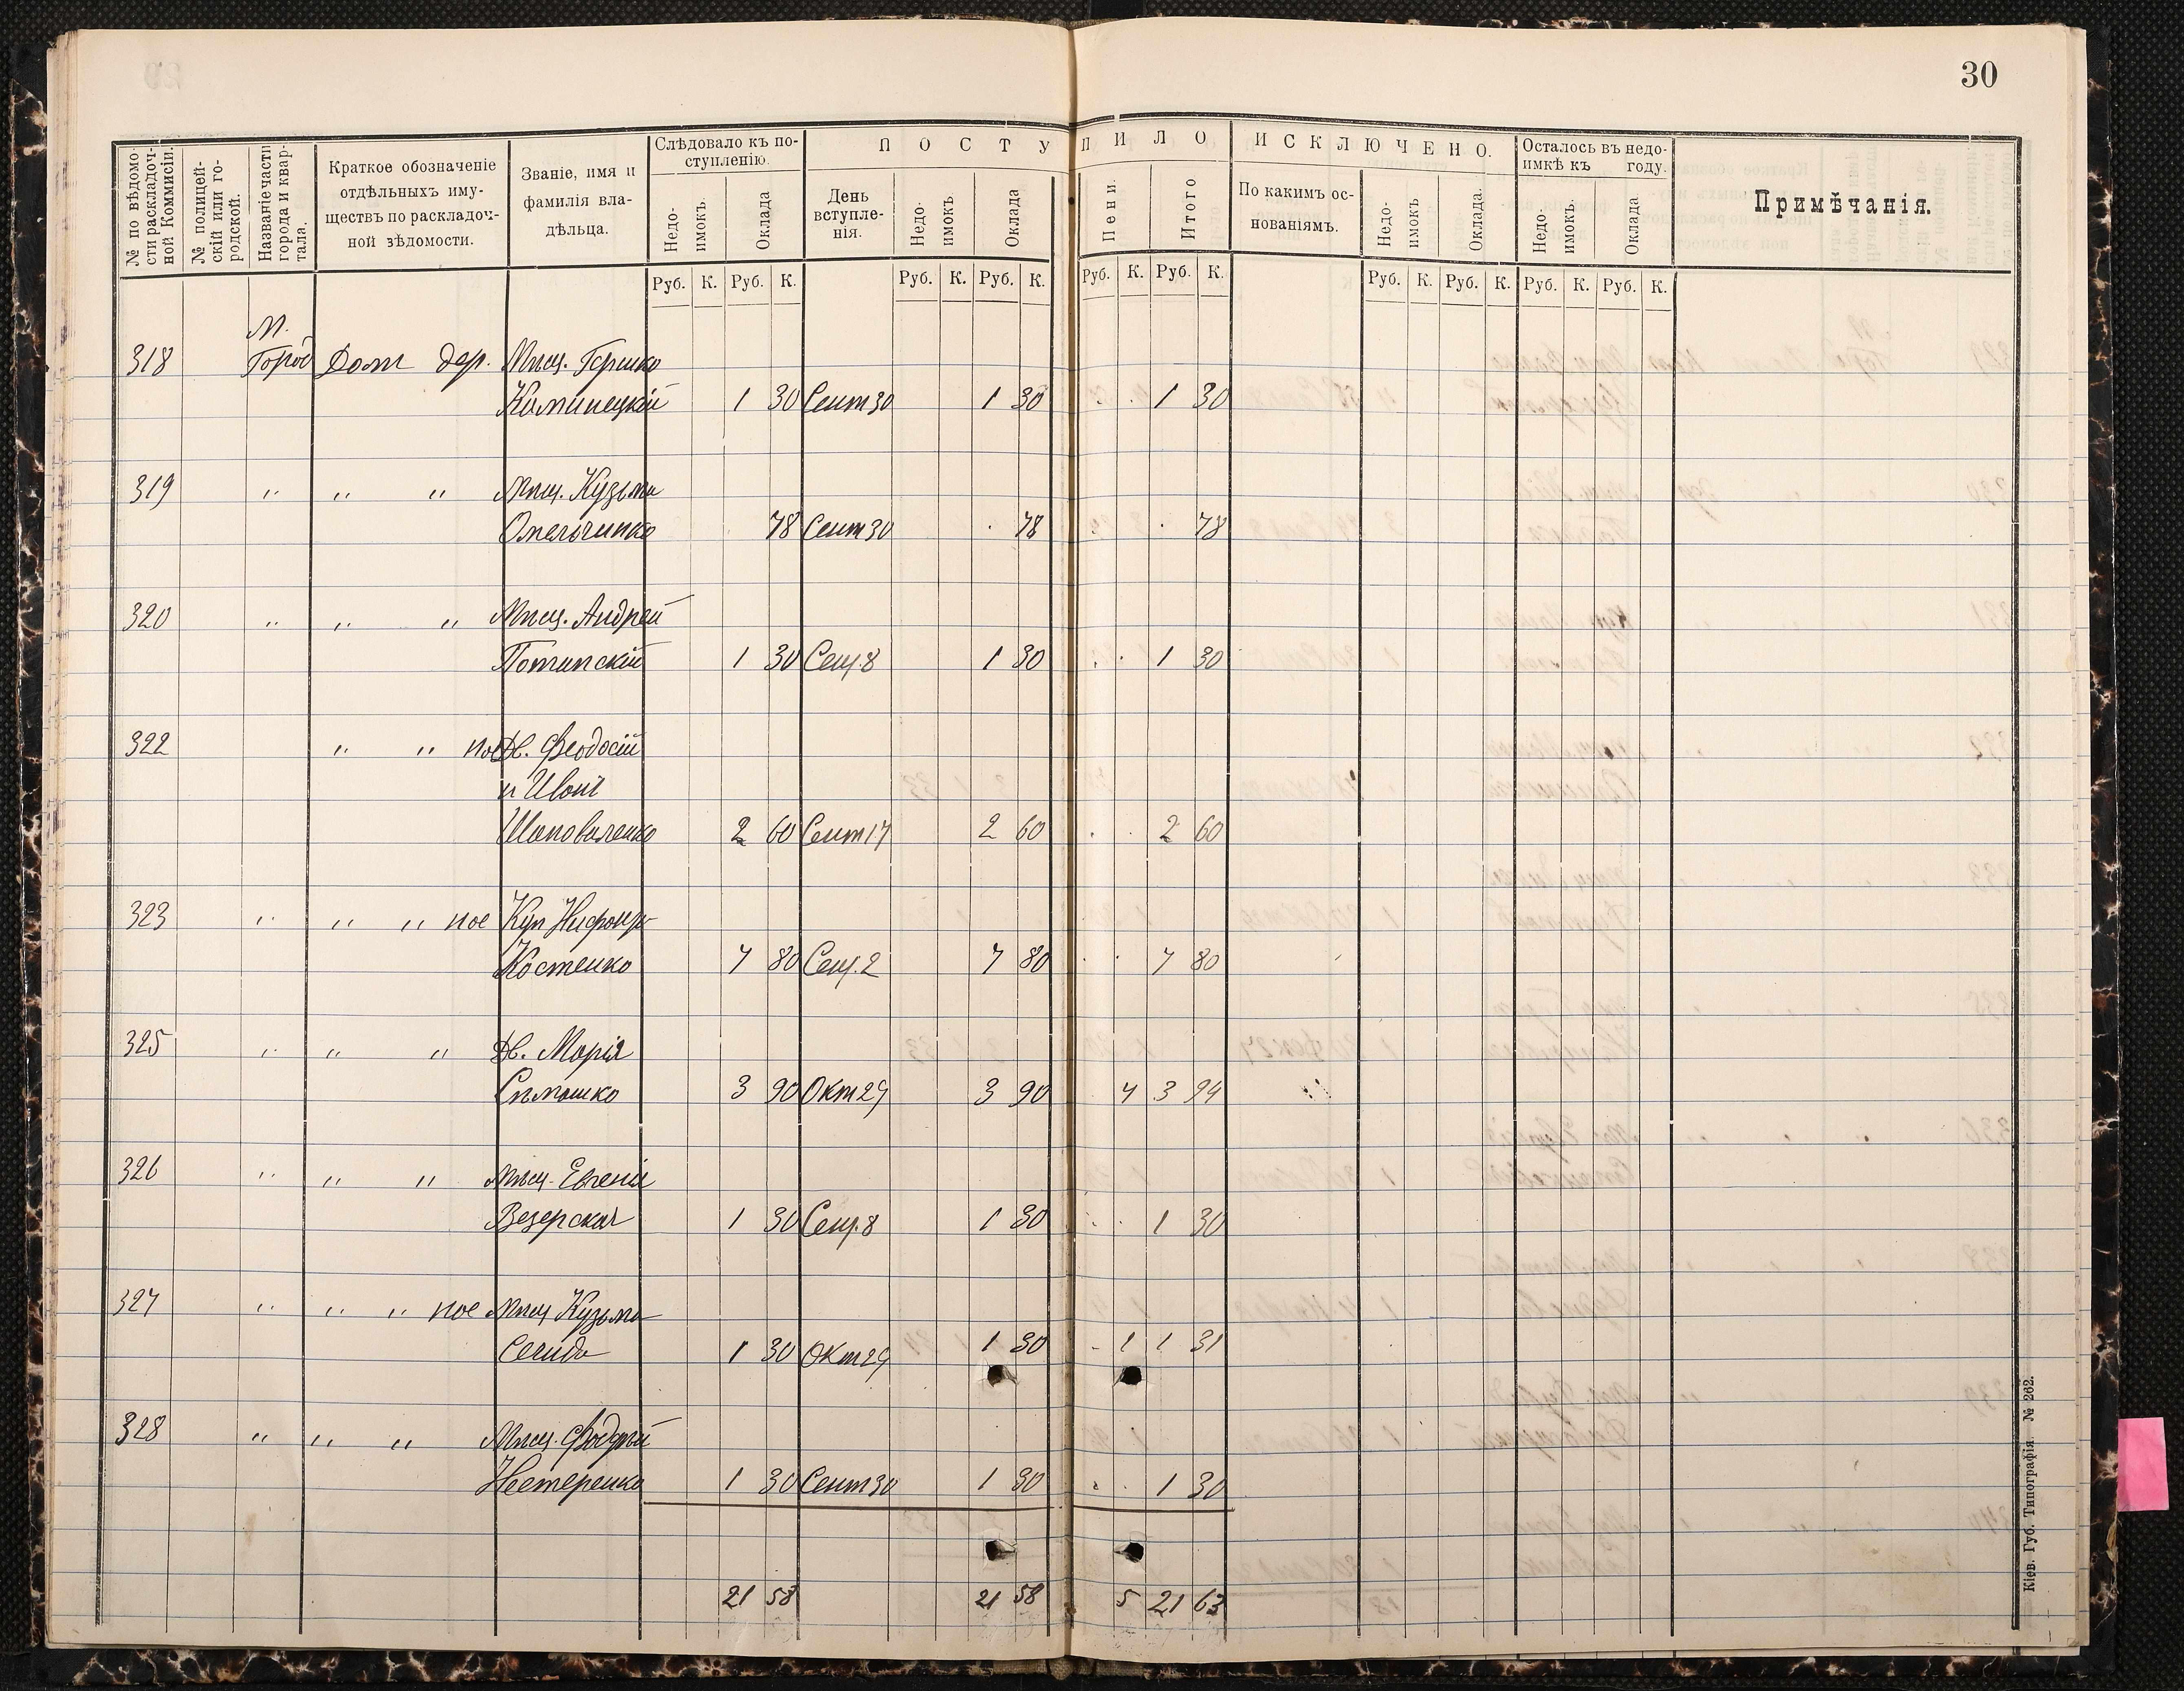 30
№ по вѣдомо-
сти раскладоч-
ной Коммисіи.
№ полицей-
скій или го-
родской.
Названіе части
города и квар-
тала.
Краткое обозначеніе
отдѣльныхъ иму-
ществъ по расkладоч-
ной вѣдомости.
Званіе, имя и
фамилія вла-
дѣльца.
Слѣдовало къ по-
ступленію.
Недо-
имокъ.
Оклада
ПОСТУПИЛО
День
вступле-
нія.
Недо-
имокъ
Оклада
Пени.
Итого
ИСКЛЮЧЕНО.
По какимъ ос-
нованіямъ.
Недо-
имокъ
Оклада.
Осталось въ недо-
имкѣ къ году.
Недо-
имокъ.
Оклада
Примѣчанія.
Руб. К. Руб. К. Руб. К. Руб. К. Руб. К. Руб. К. Руб. К. Руб. К. Руб. К. Руб. К.
М.
318 Город Дом дер. Мѣщ. Гершко
Каминецкій 1 30 Сент 30 1 30 . . 1 30
319 " " " Мѣщ. Кузьма
Омельченко 78 Сент 30 . 78 . . 78
320 " " " Мѣщ. Андрей
1 30 Сен. 8 1 30 . . 1 30
322 " " пос Дв. Феодосій
и Иван
Шаповаленко 2 60 Сент 17 2 60 . . 2 60
323 " " " пос Куп Нифонт
Костенко 7 80 Сен. 2 7 80 . . 7 80
325 " " " Дв. Марія
3 90 Окт 29 3 90 4 3 94
326 " " " Мѣщ. Евгенія
Везерская 1 30 Сен. 8 1 30 . . 1 30
327 " " " пос Мѣщ Кузьма
1 30 Окт 29 1 30 - 1 1 31
328 " " " Мѣщ.
Нестеренко 1 30 Сент 30 1 30 . . 1 30
21 58 21 58 5 21 63
Кіев. Губ. Типографія. № 262.